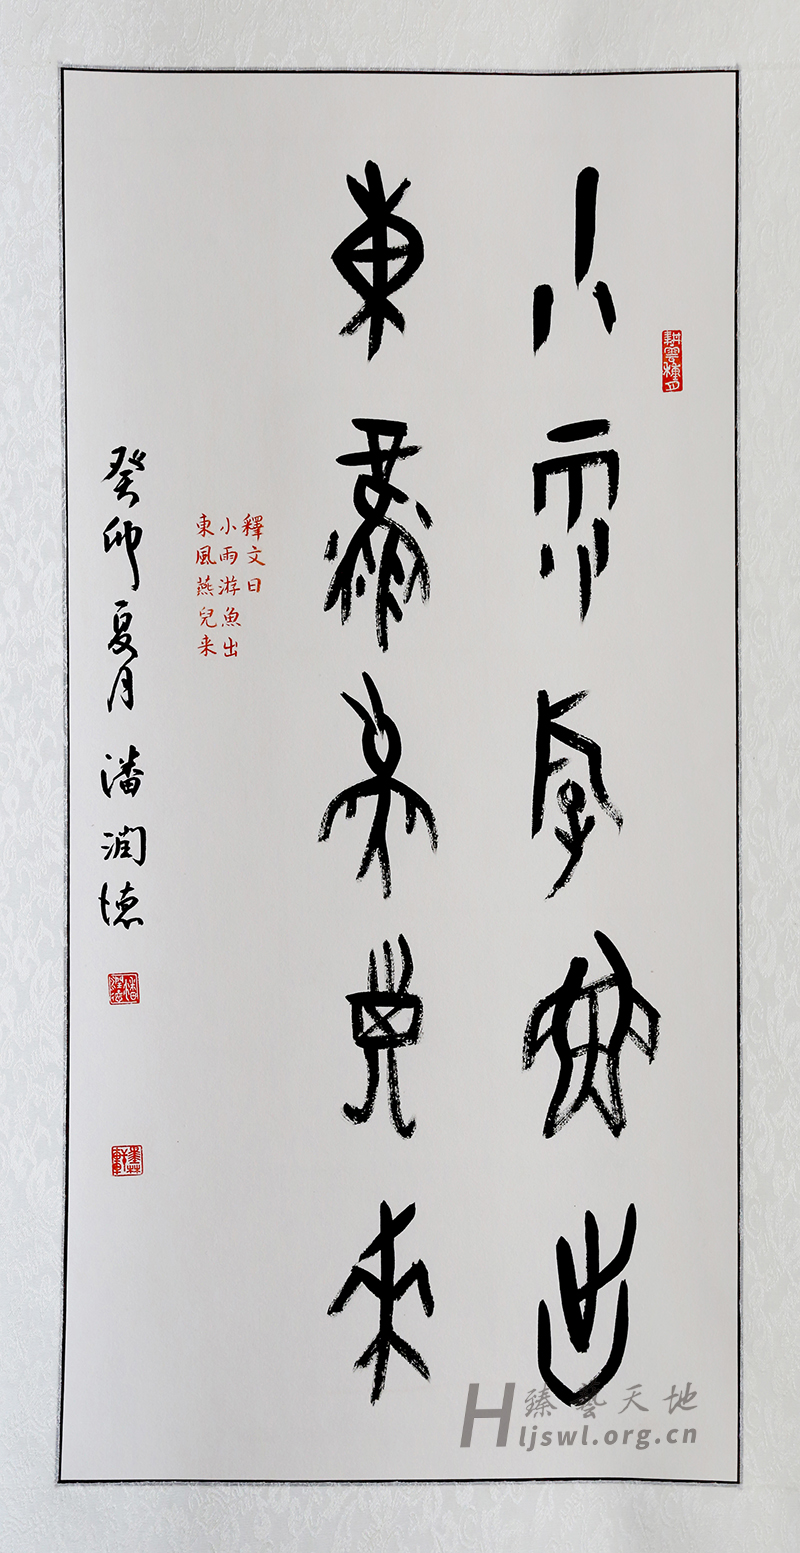 小雨游魚出
東風燕兒來
釋文曰
小雨游魚出
東風燕兒来
癸卯夏月 潘潤德
臻藝天地
Hljswl.org.cn